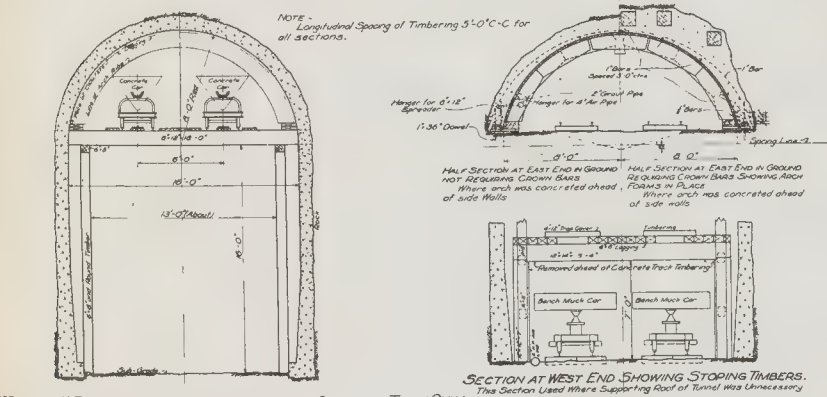 NOTE -
Longitudinal Spacing of Timbering 5'-0" C-C for
all sections.
Concrete
Car
Concrete
Car
8'-0" Rad
6"x8"
6'-0"
16'-0"
13'-0"(About)
16'-0"
6"x8" and Round Timber
Rock
Sub-Grade
1" Bars
Spaced 3'-0" ctrs
1" Bar
2" Grout Pipe
Hanger for 6"x12"
Spreader
Hanger for 4" Air Pipe
1" Bars
1"x36" Dowel
Spring Line
8'-0"
8'-0"
HALF SECTION AT EAST END IN GROUND
NOT REQUIRING CROWN BARS
Where arch was concreted ahead
of side Walls
HALF SECTION AT EAST END IN GROUND
REQUIRING CROWN BARS SHOWING ARCH
FORMS IN PLACE
Where arch was concreted ahead
of side walls
Timbering
Lagging
Removed ahead of Concrete Track Timbering
Bench Muck Car
Bench Muck Car
SECTION AT WEST END SHOWING STOPING TIMBERS.
This Section Used Where Supporting Roof of Tunnel Was Unnecessary